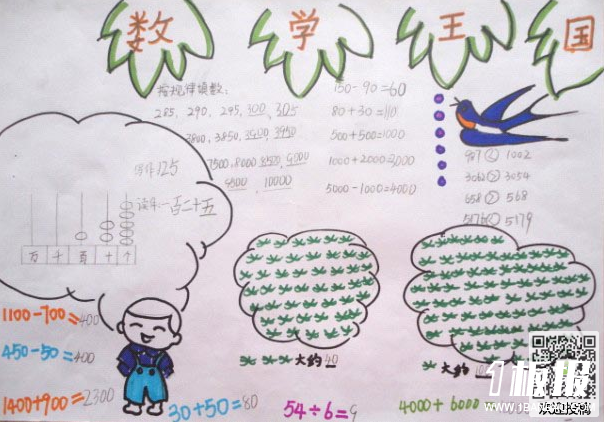 数学王国
按规律填数:
285, 290, 295, 300, 305
3800, 3850, 3900, 3950
7500, 8000, 8500, 9000
9500, 10000
150-90=60
80+30=110
500+500=1000
1000+2000=3000
5000-1000=4000
987<1002
3062>3054
658>568
5176<5179
写作125
读作:一百二十五
万 千 百 十 个
1100-700=400
450-50=400
1400+900=2300
30+50=80
大约40
54÷6=9
大约
4000+6000